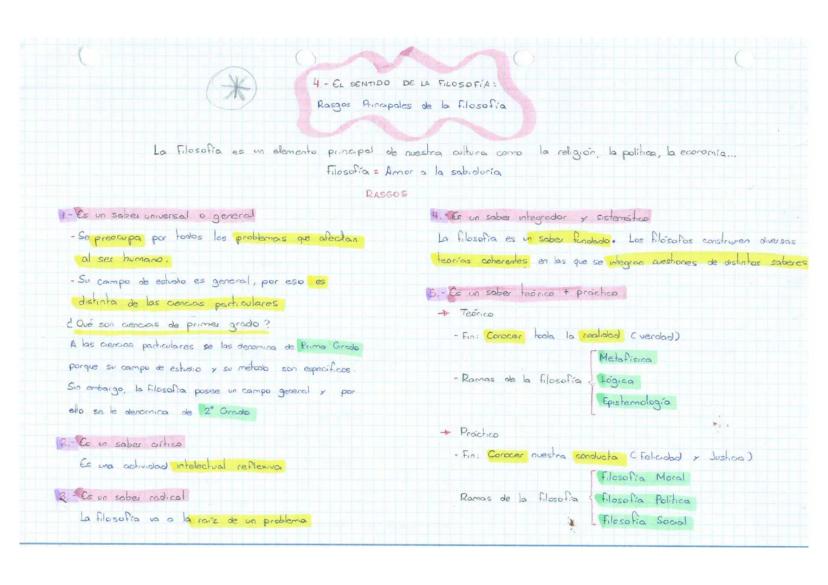 4 - EL SENTIDO DE LA FILOSOFÍA:
Rasgos Principales de la Filosofía
La Filosofía es un elemento principal de nuestra cultura como la religión, la política, la economía...
Filosofía = Amor a la sabiduría
RASGOS
1.- Es un saber universal o general
- Se preocupa por todos los problemas que afectan
al ser humano.
- Su campo de estudio es general, por eso es
distinta de las ciencias particulares
¿Qué son ciencias de primer grado?
A las ciencias particulares se las denomina de Primer Grado
porque su campo de estudio y su método son específicos.
Sin embargo, la filosofía posee un campo general y por
ello se le denomina de 2º Grado
2.- Es un saber crítico
Es una actividad intelectual reflexiva
3.- Es un saber radical
La filosofía va a la raíz de un problema
4.- Es un saber integrador y sistemático
La filosofía es un saber fundado. Los filósofos construyen diversas
teorías coherentes en las que se integran cuestiones de distintos saberes
5.- Es un saber teórico + práctico
→ Teórico
- Fin: Conocer toda la realidad (verdad)
- Ramas de la filosofía
Metafísica
Lógica
Epistemología
→ Práctico
- Fin: Conocer nuestra conducta (Felicidad y Justicia)
Ramas de la filosofía
Filosofía Moral
Filosofía Política
Filosofía Social